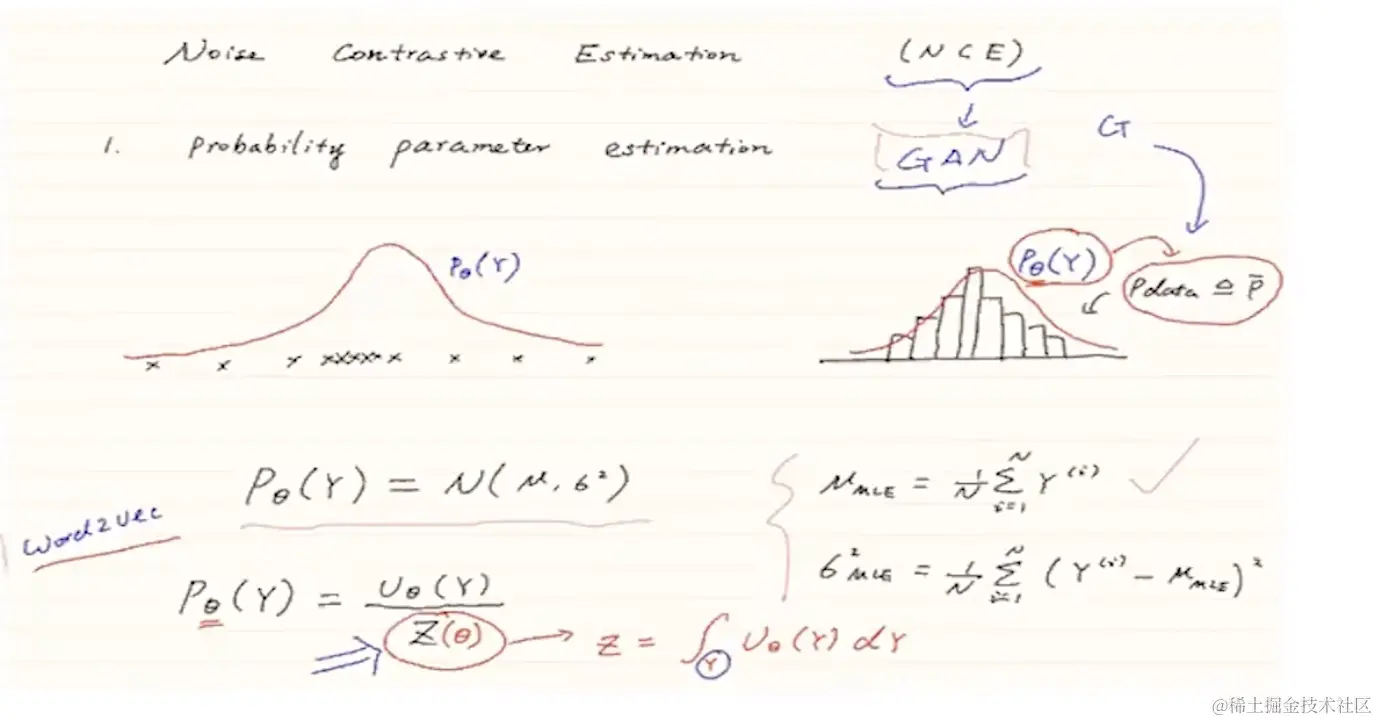 Noise Contrastive Estimation (NCE)
1. Probability parameter estimation
GAN
G
Pθ(Y)
Pθ(Y)
Pdata ≜ P̄
Pθ(Y) = N(μ, σ²)
μMLE = 1/N ∑_{i=1}^{N} Y^{(i)}
Word2vec
σ²MLE = 1/N ∑_{i=1}^{N} (Y^{(i)} - μMLE)²
Pθ(Y) = Uθ(Y) / Z(θ)
Z = ∫_Y Uθ(Y) dY
@稀土掘金技术社区